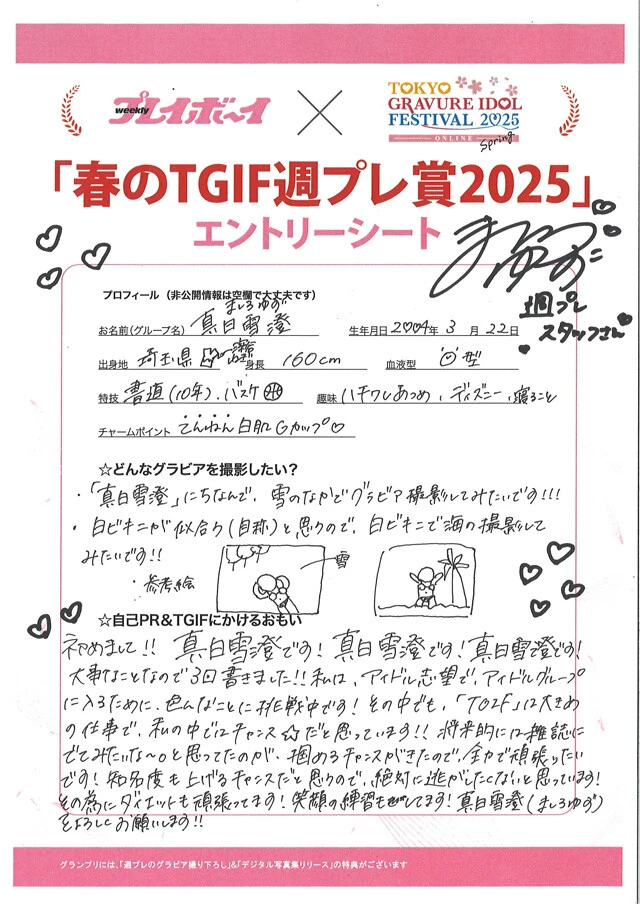 weekly プレイボーイ × TOKYO GRAVURE IDOL FESTIVAL 2025 ONLINE
Spring
「春のTGIF週プレ賞2025」
エントリーシート
ましろゆず
週プレ
スタッフさん
プロフィール（非公開情報は空欄で大丈夫です）
ましろゆず
お名前(グループ名) 真白雪澄 生年月日 2004年 3月 22日
出身地 埼玉県 身長 160cm 血液型 O型
特技 書道(10年)、バスケ 趣味 ハチワレあつめ、ディズニー、寝ること
チャームポイント てんねん白肌Gカップ♡
☆どんなグラビアを撮影したい？
・「真白雪澄」にちなんで、雪のなかでグラビア撮影してみたいです!!!
・白ビキニが似合う(自称)と思うので、白ビキニで海の撮影して
みたいです!!
・参考絵
雪
☆自己PR&TGIFにかけるおもい
初めまして!! 真白雪澄です! 真白雪澄です! 真白雪澄です!
大事なことなので3回書きました!! 私は、アイドル志望で、アイドルグループ
に入るために、色んなことに挑戦中です! その中でも、「TGIF」は大きめ
の仕事で、私の中ではチャンスだと思っています!! 将来的には雑誌に
でてみたいな〜。と思ってたのが、掴めるチャンスがきたので、全力で頑張りたい
です! 知名度も上げるチャンスだと思うので、絶対に逃がしたくないと思っています!
その為にダイエットも頑張ってます! 笑顔の練習もしてます! 真白雪澄(ましろゆず)
をよろしくお願いします!!
グランプリには、「週プレのグラビア撮り下ろし」&「デジタル写真集リリース」の特典がございます